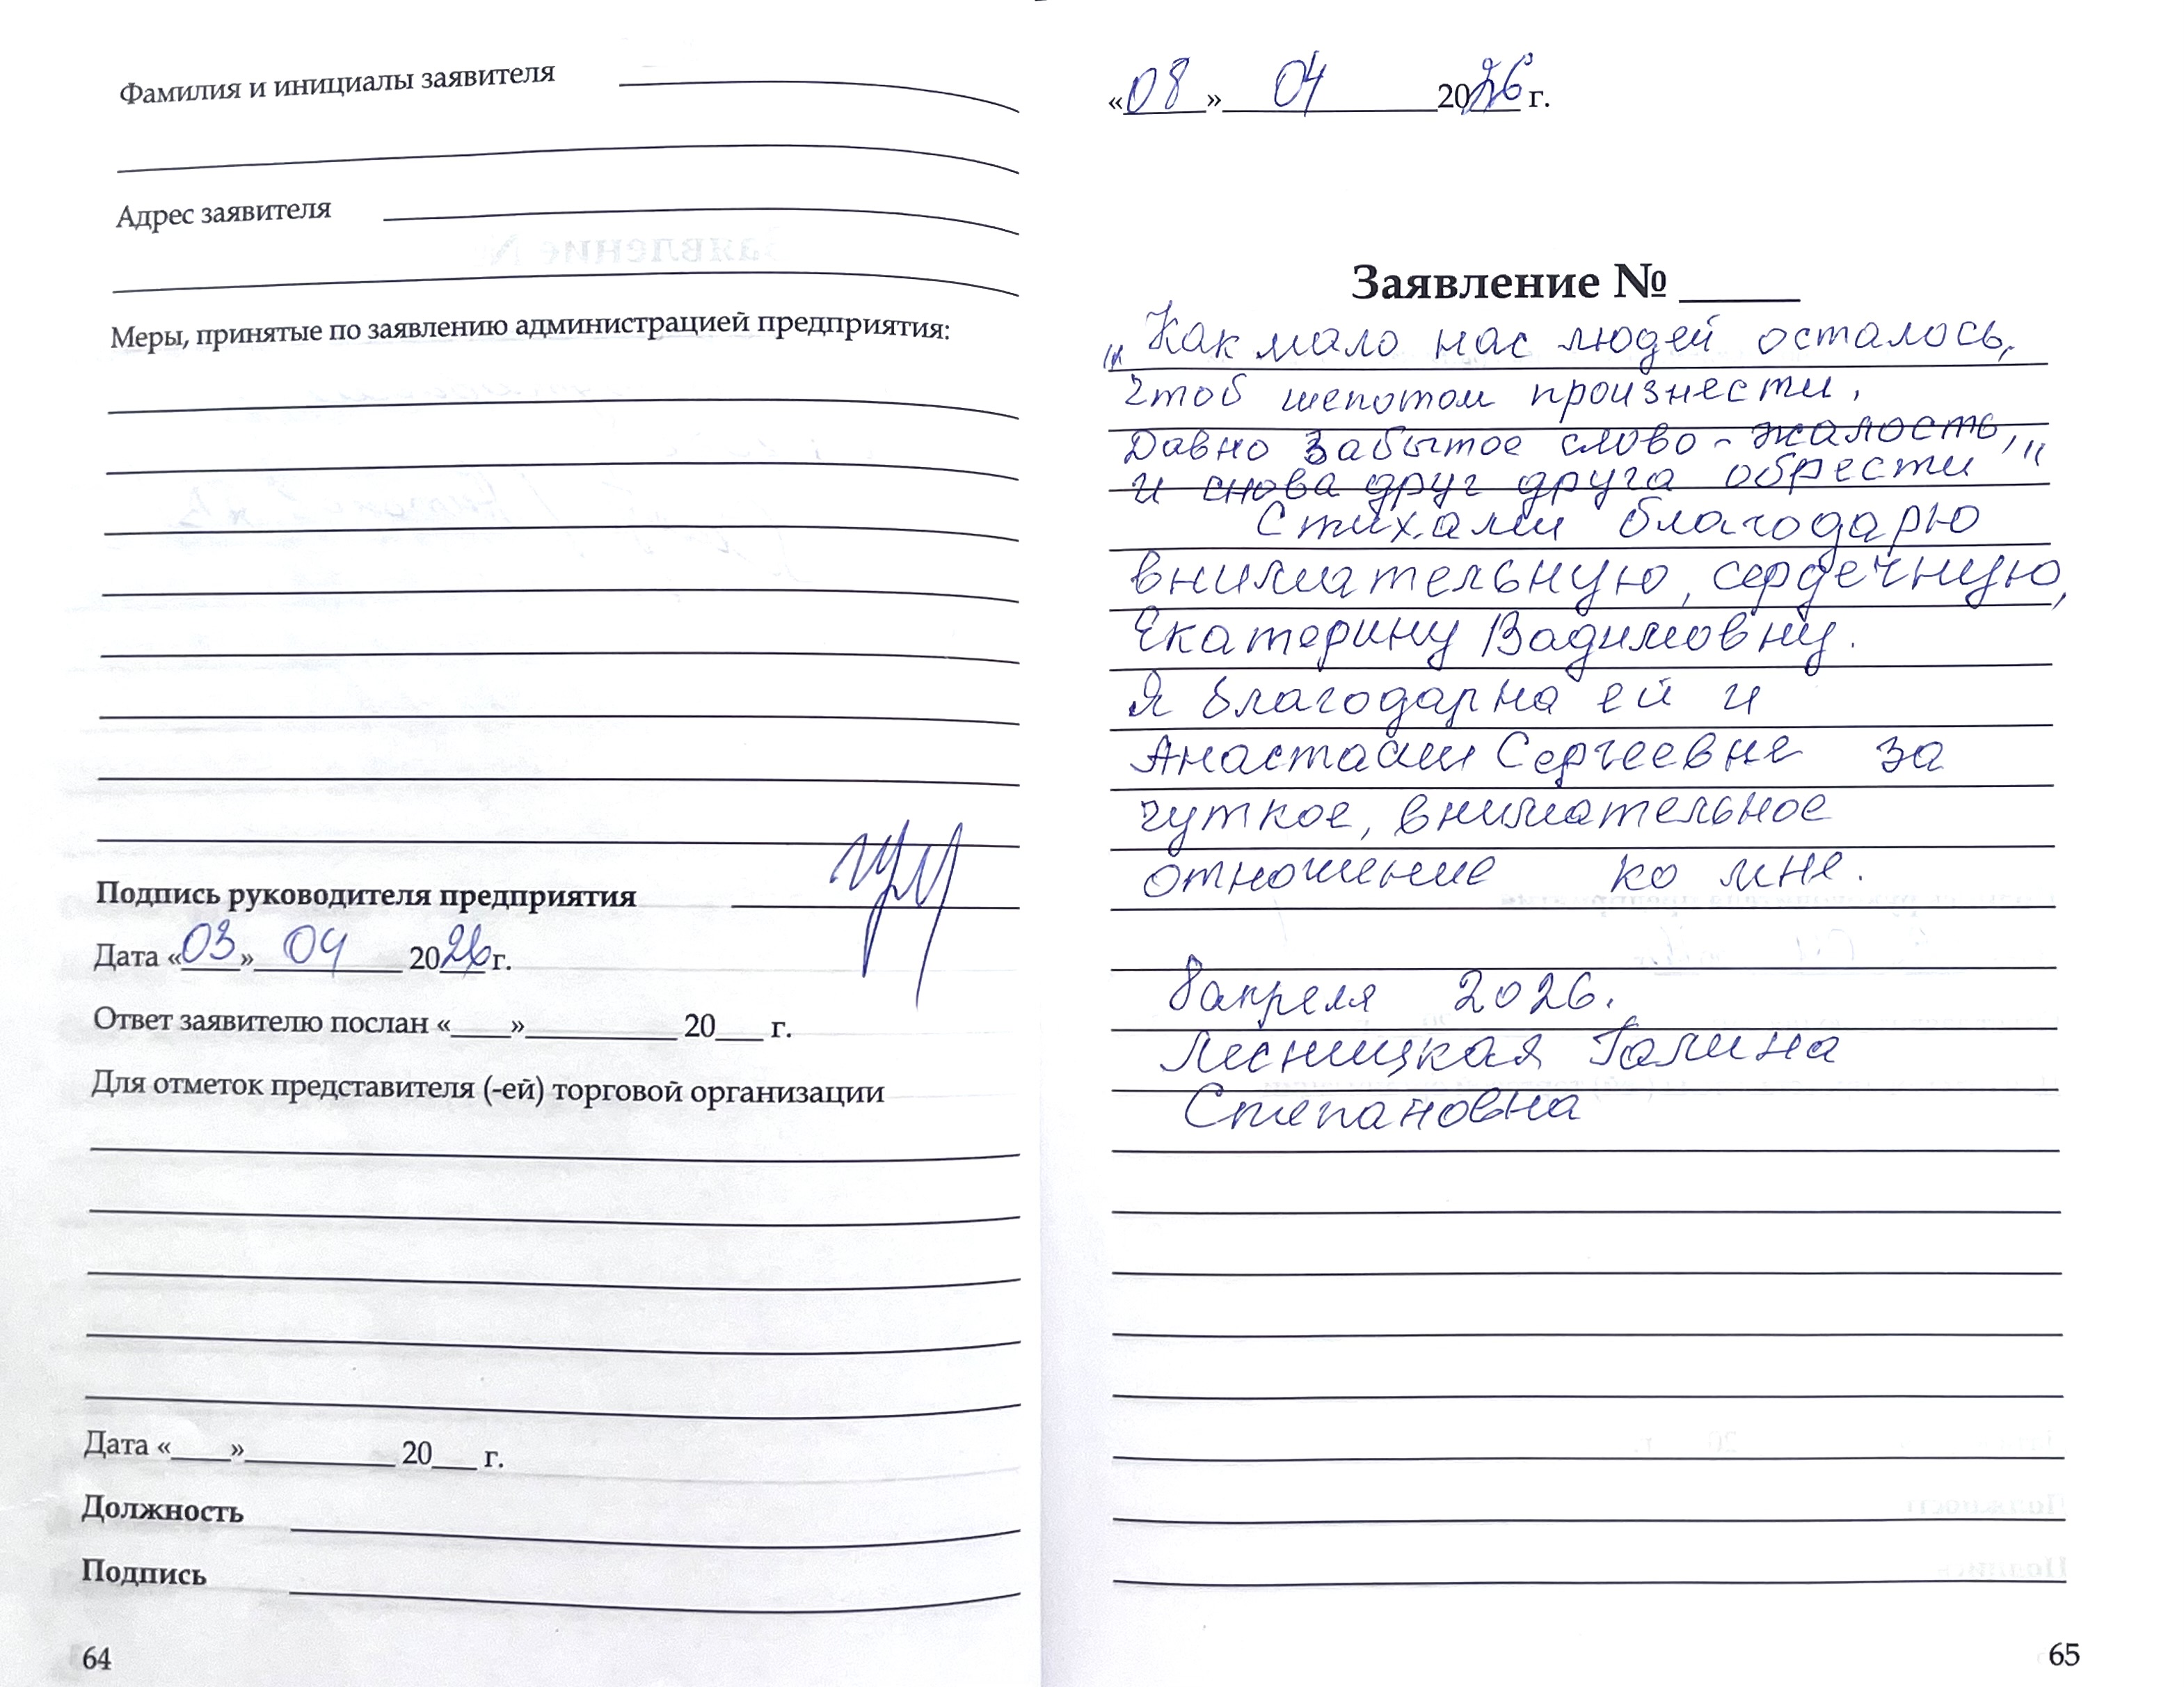 Фамилия и инициалы заявителя
Адрес заявителя
Меры, принятые по заявлению администрацией предприятия:
Подпись руководителя предприятия
Дата «03» 04 2026 г.
Ответ заявителю послан «___»__________ 20___ г.
Для отметок представителя (-ей) торговой организации
Дата «___»__________ 20___ г.
Должность
Подпись
64
«08» 04 2026 г.
Заявление № _____
"Как мало нас людей осталось,
Чтоб шепотом произнести,
Давно забытое слово - жалость,
и снова друг друга обрести"
Стихами благодарю
внимательную, сердечную,
Екатерину Вадимовну.
Я благодарна ей и
Анастасии Сергеевне за
чуткое, внимательное
отношение ко мне.
8 апреля 2026.
Лесницкая Галина
Степановна
65